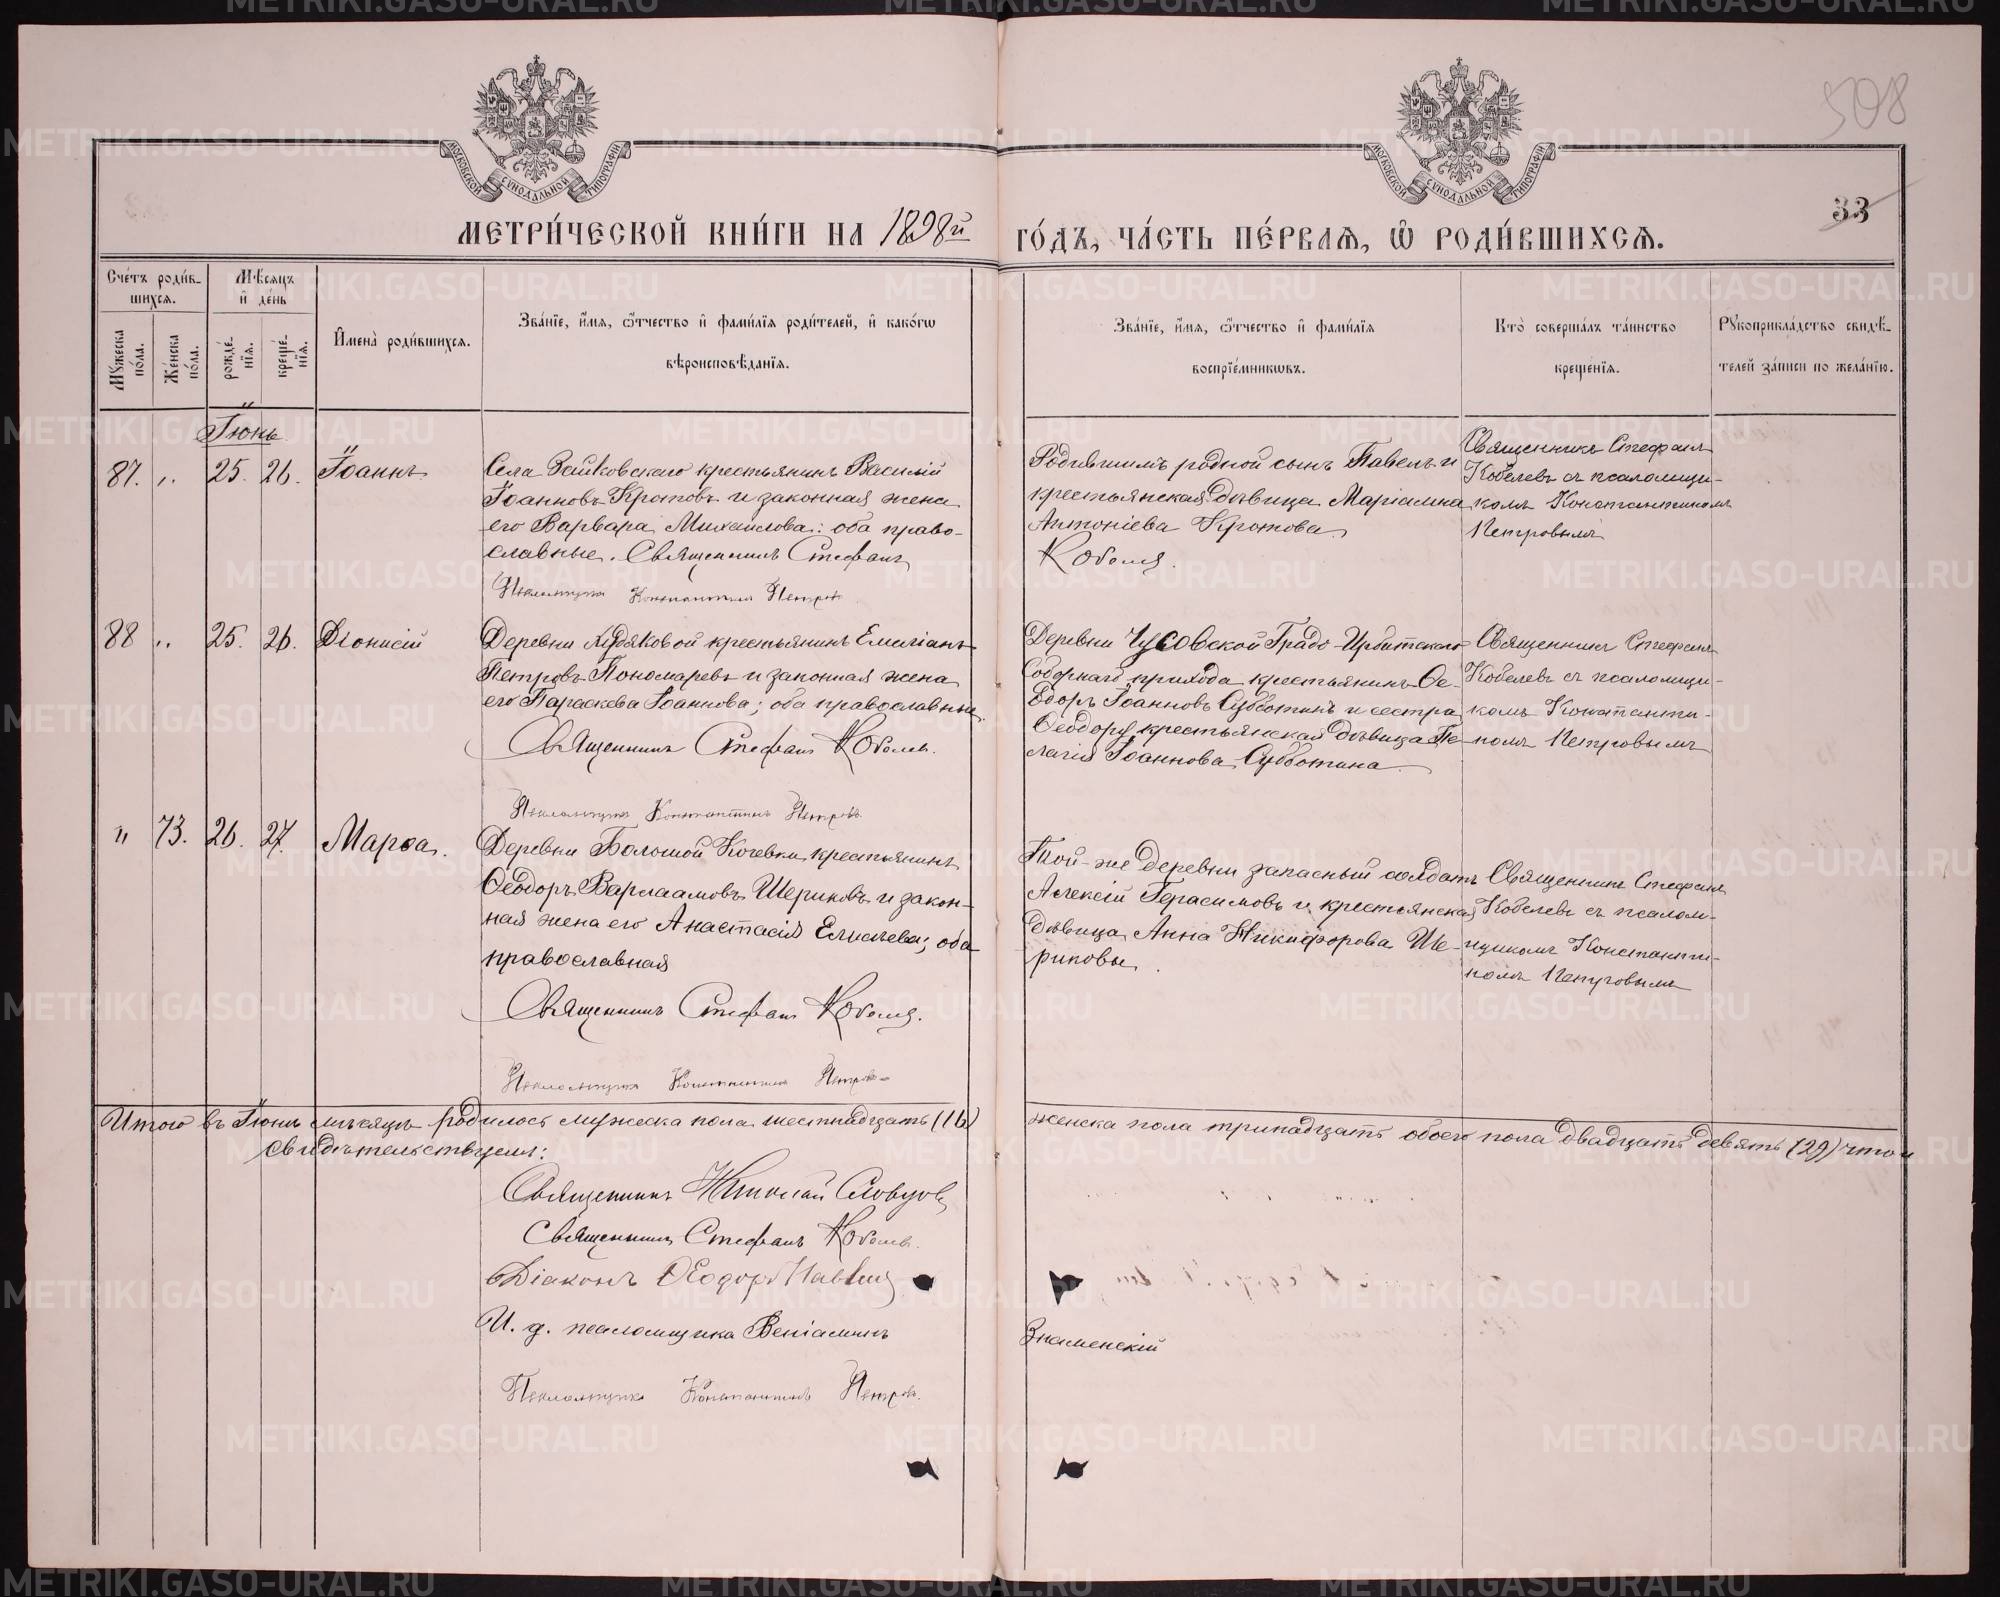 508
МОСКОВСКОЙ СѴНОДАЛЬНОЙ ТИПОГРАФІИ
МОСКОВСКОЙ СѴНОДАЛЬНОЙ ТИПОГРАФІИ
33
МЕТРИ́ЧЕСКОЙ КНИ́ГИ НА 1898й ГО́ДЪ, ЧА́СТЬ ПЕ́РВАЯ, Ѡ РОДИ́ВШИХСЯ.
Сче́тъ роди́в-
шихся.
Му́жеска по́ла.
Же́нска по́ла.
Мѣ́сяцъ
и҆ де́нь
рожде́нїя.
креще́нїя.
И҆мена̀ роди́вшихся.
Зва́нїе, и҆́мя, ѻ҆́тчество и҆ фами́лїя роди́телей, и҆ како́гѡ
вѣроисповѣ́данїя.
Зва́нїе, и҆́мя, ѻ҆́тчество и҆ фами́лїя
воспрїе́мникѡвъ.
Кто̀ соверша́лъ та́инство
креще́нїя.
Рꙋкоприкла́дство свидѣ́-
телей за́писи по жела́нїю.
Іюнь
87. „ 25. 26. Іоаннъ
Села Зайковскаго крестьянинъ Василій
Іоанновъ Кротовъ и законная жена
его Варвара Михаилова: оба право-
славные. Священникъ Стефанъ
Псаломщикъ Константинъ Петровъ
Родившимъ родной сынъ Павелъ и
крестьянская дѣвица Маріамна
Антоніева Кротова
Кобелев.
Священникъ Стефанъ
Кобелевъ съ псаломщи-
комъ Константиномъ
Петровымъ
88 „ 25. 26. Діонисій
Деревни Худяковой крестьянинъ Емиліанъ
Петровъ Пономаревъ и законная жена
его Параскева Іоаннова; оба православные
Священникъ Стефанъ Кобелев.
Псаломщикъ Константинъ Петровъ
Деревни Чусовской Градо-Ирбитскаго
Соборнаго прихода крестьянинъ Ѳе-
одоръ Іоанновъ Субботинъ и сестра
Ѳеодору крестьянская дѣвица Пе-
лагія Іоаннова Субботина
Священникъ Стефанъ
Кобелевъ съ псаломщи-
комъ Константи-
номъ Петровымъ
„ 73. 26. 27. Марѳа.
Деревни Большой Кочевки крестьянинъ
Ѳеодоръ Варлаамовъ Шериковъ и закон-
ная жена его Анастасія Елисѣева; оба
православная
Священникъ Стефанъ Кобелев.
Псаломщикъ Константинъ Петровъ
Той-же деревни запасный солдатъ
Алексій Герасимовъ и крестьянская
дѣвица Анна Никифорова Ше-
риковы
Священникъ Стефанъ
Кобелевъ съ псалом-
щикомъ Константи-
номъ Петровымъ
Итого въ Іюнѣ мѣсяцѣ родилось мужеска пола шестнадцать (16) женска пола тринадцать обоего пола двадцать девять (29) что и
свидѣтельствуемъ:
Священникъ Николай Словцовъ
Священникъ Стефанъ Кобелев.
Діаконъ Ѳеодоръ
И. д. псаломщика Веніаминъ Знаменскій
Псаломщикъ Константинъ Петровъ.
METRIKI.GASO-URAL.RU